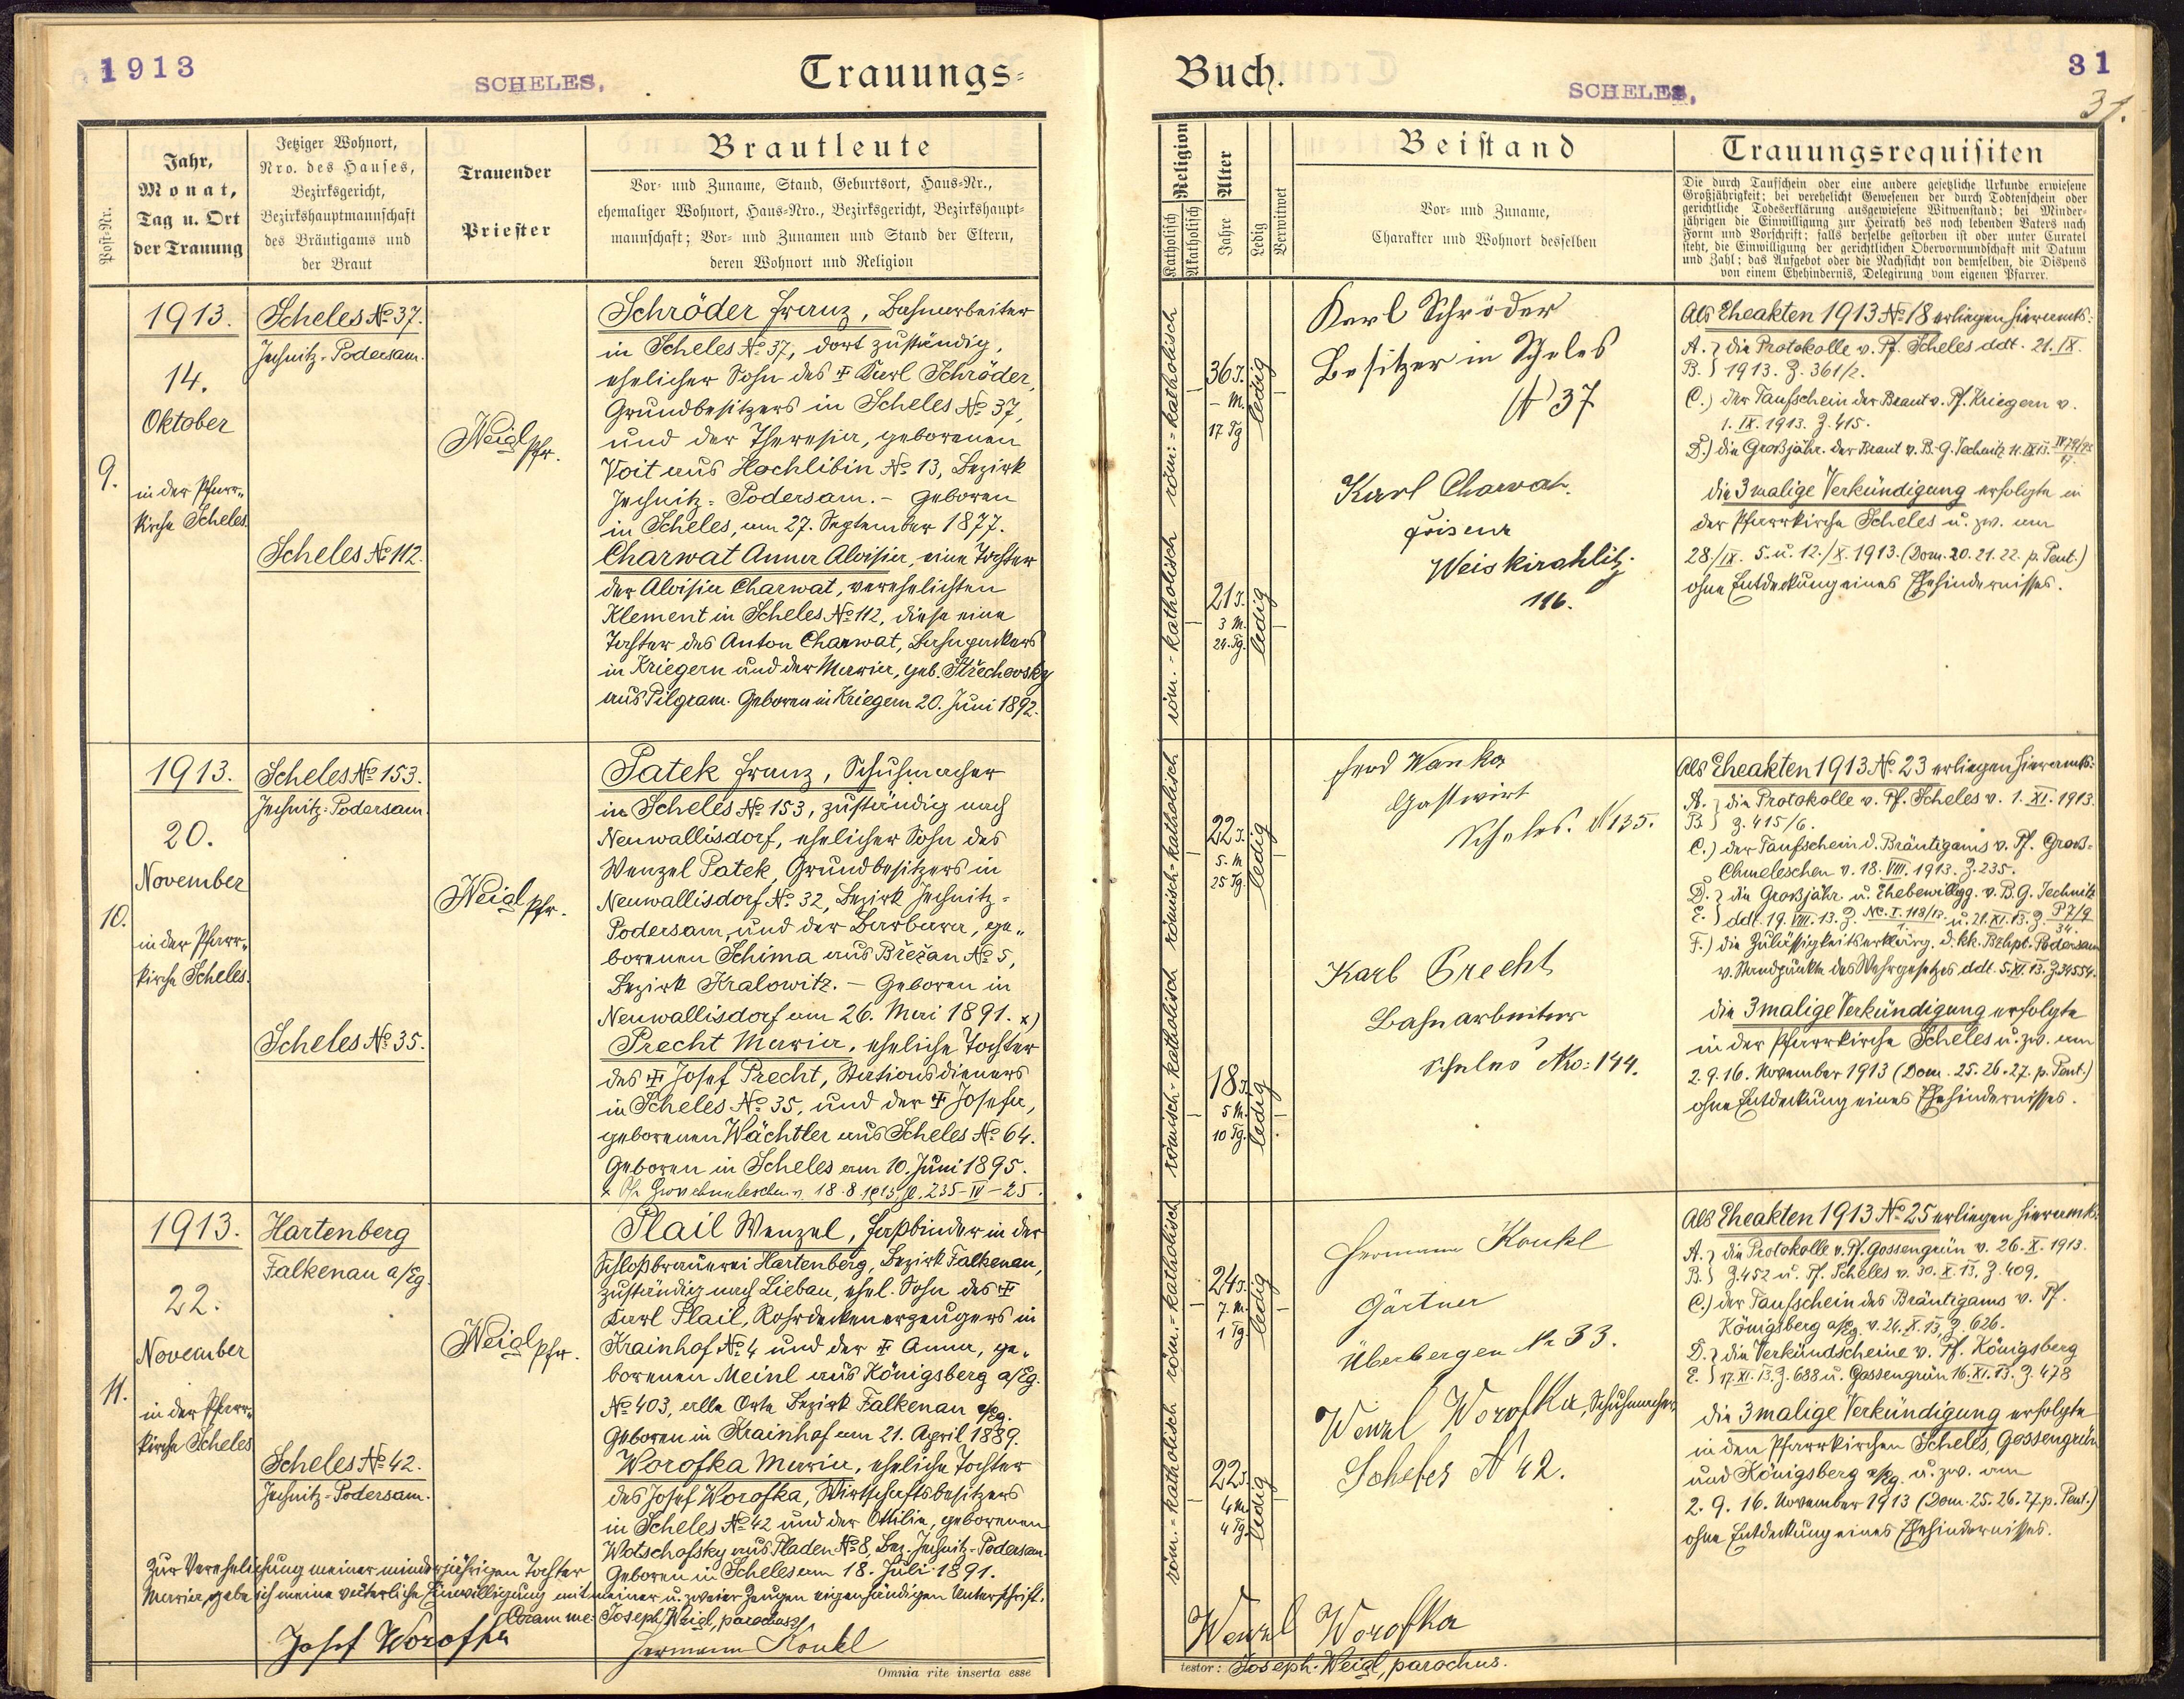 1913
SCHELES.
Trauungs-
Post-Nr.
Jahr,
Monat,
Tag u. Ort
der Trauung
Jetziger Wohnort,
Nro. des Hauses,
Bezirksgericht,
Bezirkshauptmannschaft
des Bräutigams und
der Braut
Trauender
Priester
Brautleute
Vor- und Zuname, Stand, Geburtsort, Haus-Nr.,
ehemaliger Wohnort, Haus-Nro., Bezirksgericht, Bezirkshaupt-
mannschaft; Vor- und Zunamen und Stand der Eltern,
deren Wohnort und Religion
9.
1913.
14.
Oktober
in der Pfarr-
kirche Scheles.
Scheles № 37.
Jechnitz-Podersam.
Scheles № 112.
Weigl Pfr.
Schröder Franz, Bahnarbeiter
in Scheles № 37, dort zuständig,
ehelicher Sohn des ‡ Karl Schröder,
Grundbesitzers in Scheles № 37,
und der Theresia, geborenen
Voit aus Hochlibin № 13, Bezirk
Jechnitz-Podersam. – Geboren
in Scheles, am 27. September 1877.
Charwat Anna Aloisia, eine Tochter
der Aloisia Charwat, verehelichten
Klement in Scheles № 112, diese eine
Tochter des Anton Charwat, Bahnpackers
in Kriegern und der Maria, geb. Střechovsky
aus Pilgram. Geboren in Kriegern 20. Juni 1892.
10.
1913.
20.
November
in der Pfarr-
kirche Scheles.
Scheles № 153.
Jechnitz-Podersam.
Scheles № 35.
Weigl Pfr.
Patek Franz, Schuhmacher
in Scheles № 153, zuständig nach
Neuwallisdorf, ehelicher Sohn des
Wenzel Patek, Grundbesitzers in
Neuwallisdorf № 32, Bezirk Jechnitz-
Podersam, und der Barbara, ge-
borenen Schima aus Břežan № 5,
Bezirk Kralowitz. – Geboren in
Neuwallisdorf am 26. Mai 1891. x)
Precht Maria, eheliche Tochter
des ‡ Josef Precht, Stationsdieners
in Scheles № 35, und der ‡ Josefa,
geborenen Wächtler aus Scheles № 64.
Geboren in Scheles am 10. Juni 1895.
18.8.1913, 235-IV-25.
11.
1913.
22.
November
in der Pfarr-
kirche Scheles
Hartenberg
Falkenau a/Eg.
Scheles № 42.
Jechnitz-Podersam.
Weigl Pfr.
Plail Wenzel, Faßbinder in der
Schloßbrauerei Hartenberg, Bezirk Falkenau,
zuständig nach Liebau, ehel. Sohn des ‡
Karl Plail, Rohrdeckenerzeugers in
Krainhof № 4 und der ‡ Anna, ge-
borenen Meinl aus Königsberg a/Eg.
№ 403, alle Orte Bezirk Falkenau a/Eg.
Geboren in Krainhof am 21. April 1889.
Worofka Maria, eheliche Tochter
des Josef Worofka, Wirtschaftsbesitzers
in Scheles № 42 und der Ottilia, geborenen
Wotschofsky aus Pladen № 8, Bez. Jechnitz-Podersam.
Geboren in Scheles am 18. Juli 1891.
Zur Verehelichung meiner minderjährigen Tochter
Maria, gebe ich meine väterliche Einwilligung mit meiner u. zweier Zeugen eigenhändigen Unterschrift.
Coram me: Joseph Weigl, parochus
Josef Worofka
Hermann Konkl
Omnia rite inserta esse
Buch.
SCHELES,
31
31.
Religion
Katholisch
Akatholisch
Alter
Jahre
Ledig
Verwitwet
Beistand
Vor- und Zuname,
Charakter und Wohnort desselben
Trauungsrequisiten
Die durch Taufschein oder eine andere gesetzliche Urkunde erwiesene
Großjährigkeit; bei verehelicht Gewesenen der durch Todtenschein oder
gerichtliche Todeserklärung ausgewiesene Witwenstand; bei Minder-
jährigen die Einwilligung zur Heirath des noch lebenden Vaters nach
Form und Vorschrift; falls derselbe gestorben ist oder unter Curatel
steht, die Einwilligung der gerichtlichen Obervormundschaft mit Datum
und Zahl; das Aufgebot oder die Nachsicht von demselben, die Dispens
von einem Ehehindernis, Delegirung vom eigenen Pfarrer.
röm:-katholisch
36 J.
– M.
17 Tg
ledig
röm.-katholisch
21 J.
3 M.
24. Tg.
ledig
Karl Schröder
Besitzer in Scheles
№ 37
Karl Charvat.
Friseur
Weiskirchlitz.
116.
Als Eheakten 1913 № 18 erliegen hieramts:
A. } die Protokolle v. Pf. Scheles ddt. 21. IX.
B. } 1913. Z. 361/2.
C.) der Taufschein der Braut v. Pf. Kriegern v.
1. IX. 1913. Z. 415.
D.) die Großjähr. der Braut v. B.-G. Jechnitz
die 3malige Verkündigung erfolgte in
der Pfarrkirche Scheles u. zw. am
28./IX. 5. u. 12./X. 1913. (Dom. 20. 21. 22. p. Pent.)
ohne Entdeckung eines Ehehindernisses.
römisch-katholisch
22 J.
5. M
25 Tg.
ledig
römisch-katholisch
18 J.
5 M.
10 Tg.
ledig
Ferd Wanka
Gastwirt
Scheles. № 135.
Karl Precht
Bahnarbeiter
Scheles Nro: 144.
Als Eheakten 1913 № 23 erliegen hieramts:
A. } die Protokolle v. Pf. Scheles v. 1. XI. 1913.
B. } Z. 415/6.
C.) der Taufschein d. Bräutigams v. Pf. Groß-
Chmeleschen v. 18. VIII. 1913. Z. 235.
D. } die Großjähr. u. Ehebewillgg. v. B.G. Jechnitz
E. } ddt. 19. VIII. 13. Z. Nc. I. 118/13 u. 21. XI. 13. Z. P 7/9
F.) die Zulässigkeitserklärg. d. kk. Bzhpt. Podersam
v. Standpunkte des Wehrgesetzes ddt. 5. XI. 13. Z 34554.
die 3malige Verkündigung erfolgte
in der Pfarrkirche Scheles u. zw. am
2. 9. 16. November 1913 (Dom. 25. 26. 27. p. Pent.)
ohne Entdeckung eines Ehehindernisses.
röm.-katholisch
24 J.
7. M.
1 Tg.
ledig
röm.-katholisch
22 J.
4 M.
4 Tg.
ledig
Hermann Konkl
Gärtner
Überbergen № 33.
Wenzl Worofka, Schuhmacher
Scheles № 42.
Als Eheakten 1913 № 25 erliegen hieramts:
A. } die Protokolle v. Pf. Gossengrün v. 26. X. 1913.
B. } Z. 452 u. Pf. Scheles v. 30. X. 13. Z. 409.
C.) der Taufschein des Bräutigams v. Pf.
Königsberg a/Eg. v. 24. X. 13, Z. 626.
D. } die Verkündscheine v. Pf. Königsberg
E. } 17. XI. 13. Z. 688 u. Gossengrün 16. XI. 13. Z. 478
die 3malige Verkündigung erfolgte
in den Pfarrkirchen Scheles, Gossengrün
und Königsberg a/Eg. u. zw. am
2. 9. 16. November 1913 (Dom. 25. 26. 27. p. Pent.)
ohne Entdeckung eines Ehehindernisses.
Wenzl Worofka
testor: Joseph Weigl, parochus.